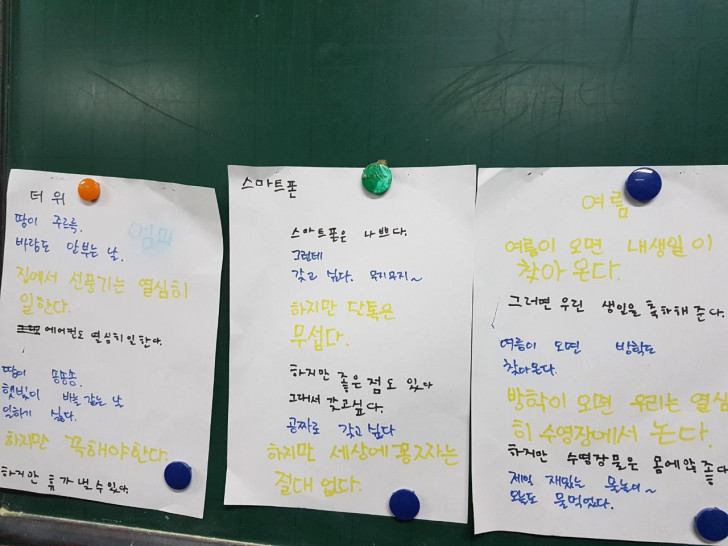 더위
땀이 주르륵.
바람도 안부는 날.
엄마
집에서 선풍기는 열심히
일한다.
에어컨도 열심히일한다.
땀이 송송송.
햇빛이 바늘 같은 날
일하기 싫다.
하지만 꼭해야한다.
하지만 휴가 낼수있다.
스마트폰
스마트폰은 나쁘다.
그런데
갖고 싶다.
하지만 단톡은
무섭다.
하지만 좋은 점도 있다
그래서 갖고싶다.
공짜로 갖고 싶다
하지만 세상에 공짜는
절대 없다.
여름
여름이 오면 내생일이
찾아 온다.
그러면 우린 생일을 축하해 준다.
여름이 오면 방학도
찾아온다.
방학이 오면 우리는 열심
히 수영장에서 논다.
하지만 수영장 물은 몸에안좋다
제일 재밌는 물놀이~
오늘도 물먹었다.